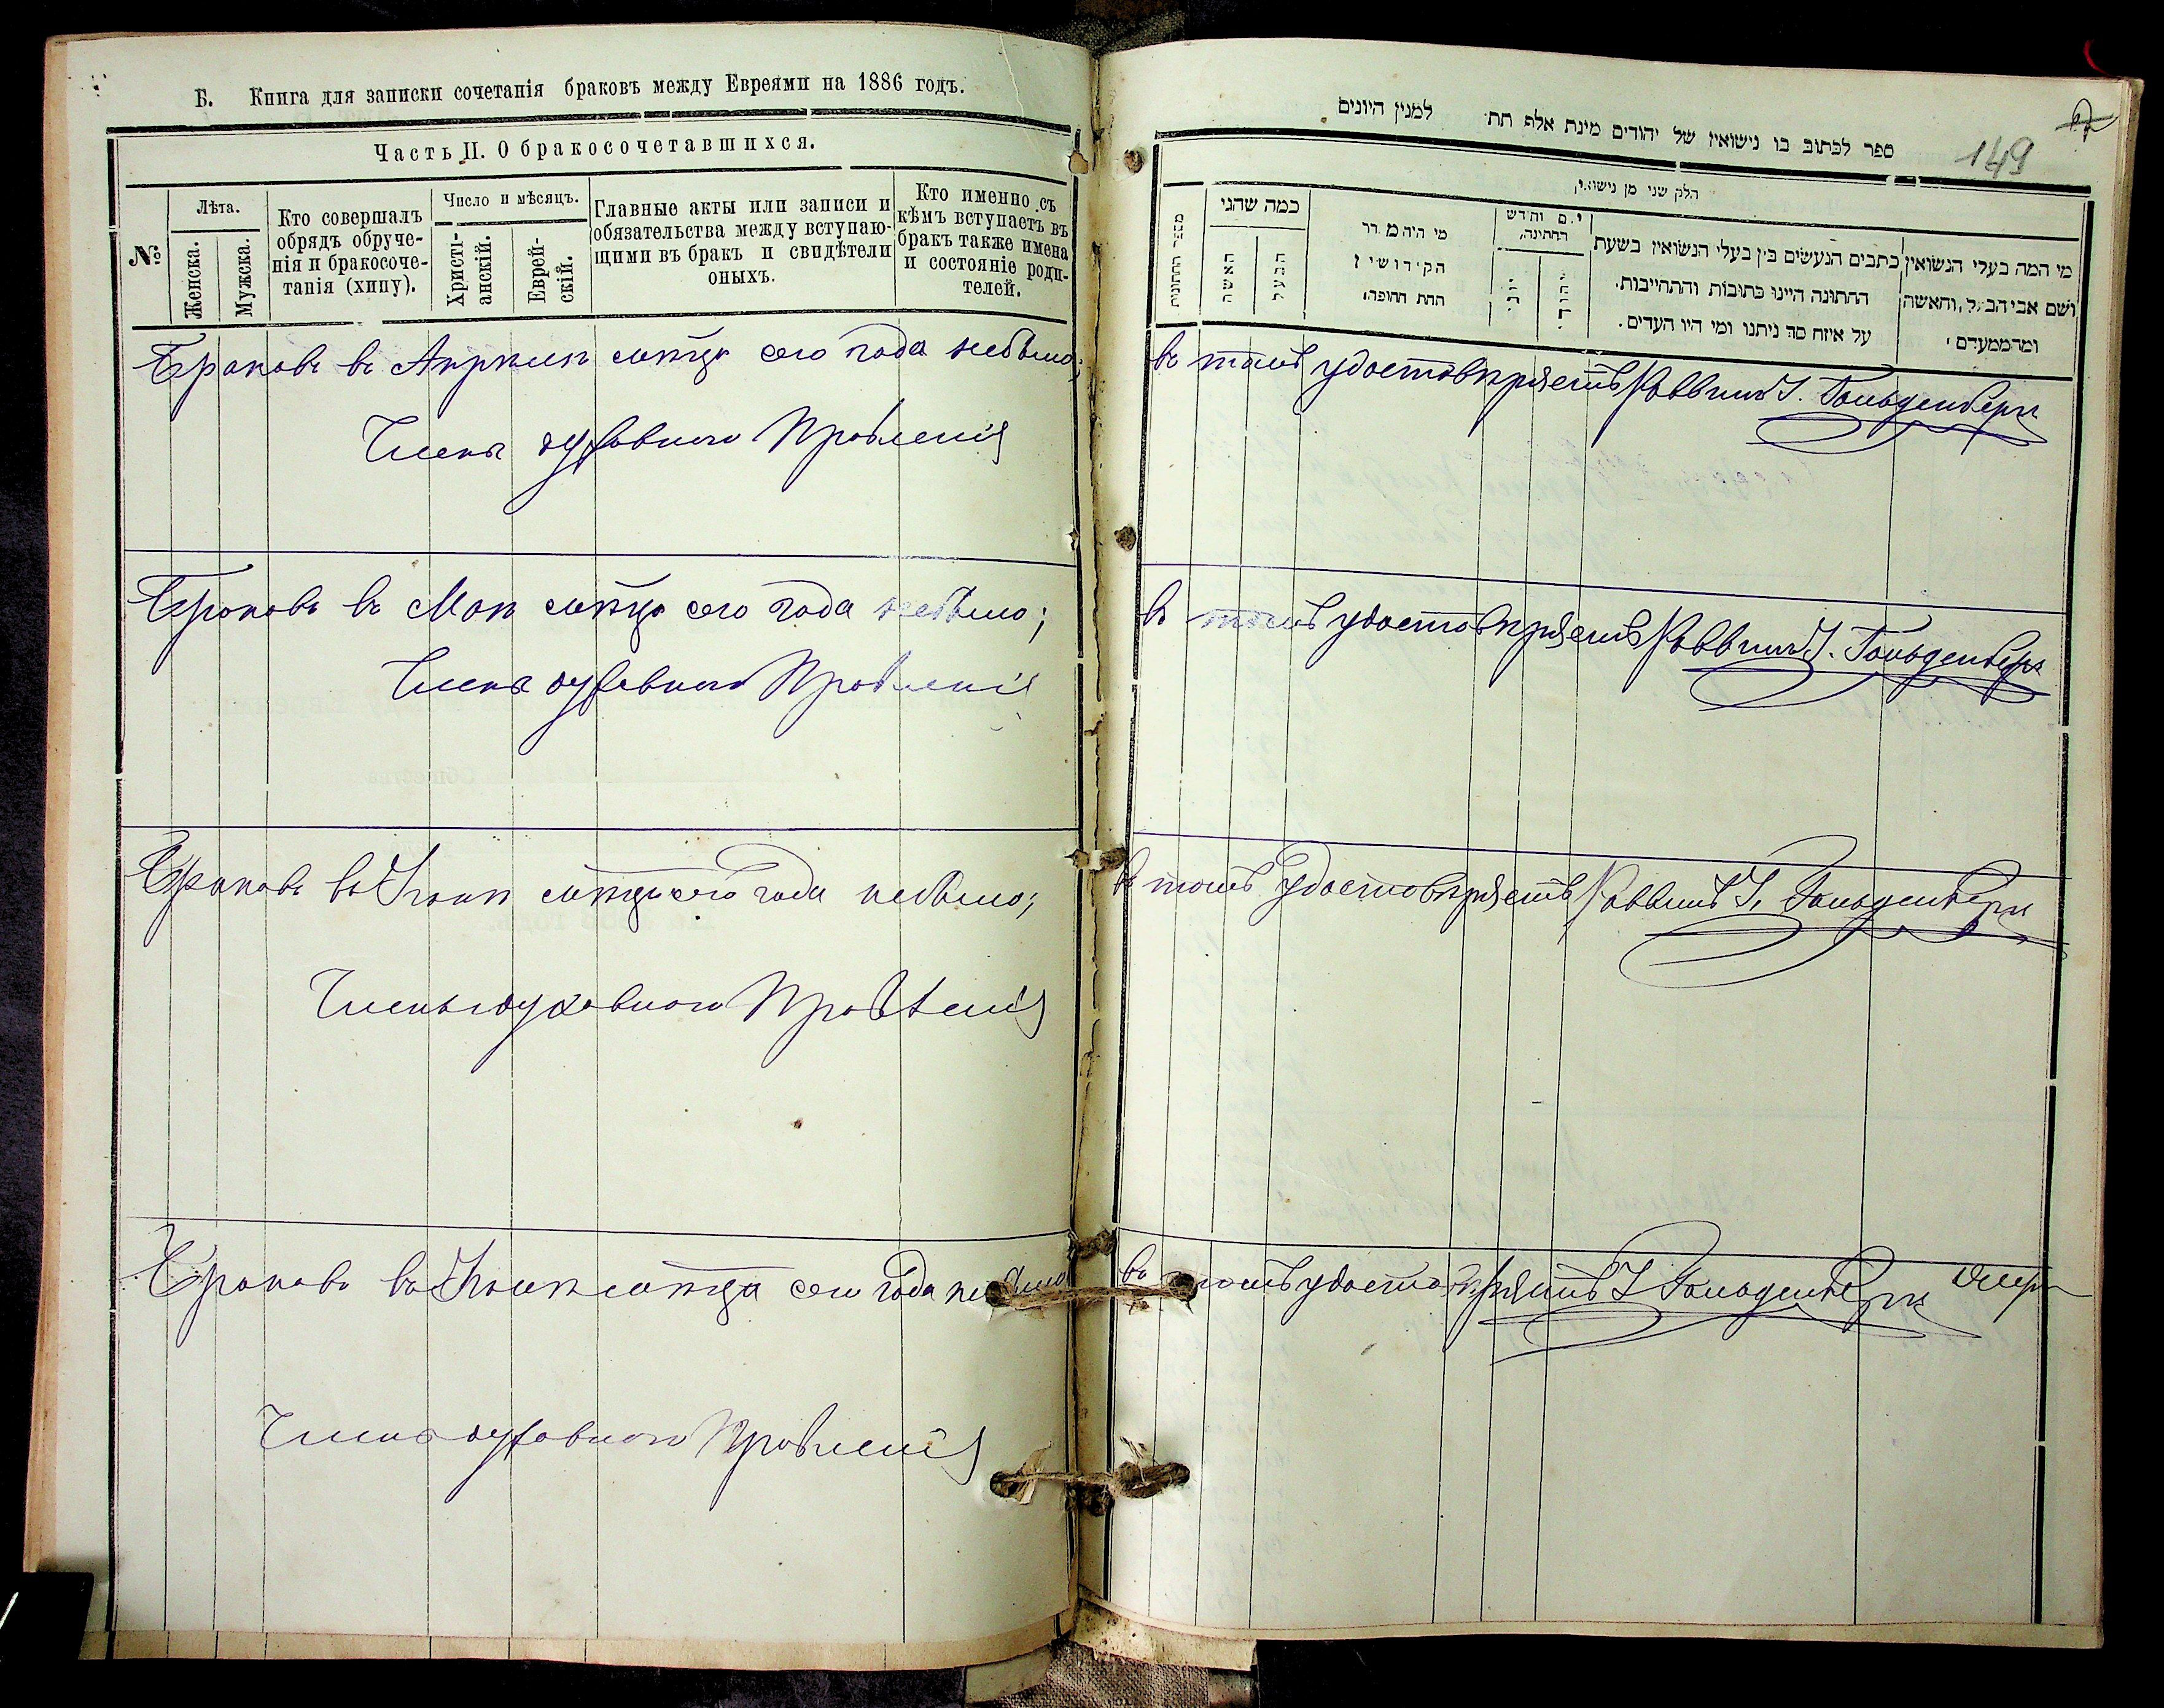 Б. Книга для записки сочетанія браковъ между Евреями на 1886 годъ.
Часть II. О бракосочетавшихся.
№
Лѣта.
Женска.
Мужска.
Кто совершалъ
обрядъ обруче-
нія и бракосоче-
танія (хипу).
Число и мѣсяцъ.
Христі-
анскій.
Еврей-
скій.
Главные акты или записи и
обязательства между вступаю-
щими въ бракъ и свидѣтели
оныхъ.
Кто именно съ
кѣмъ вступаетъ въ
бракъ также имена
и состояніе роди-
телей.
Браковъ въ Апрѣлѣ мѣсяцѣ сего года небыло;
Члены духовнаго Правленія
Браковъ въ Маѣ мѣсяцѣ сего года небыло;
Члены духовнаго Правленія
Браковъ въ Іюнѣ мѣсяцѣ сего года небыло;
Члены духовнаго Правленія
Браковъ въ Іюлѣ мѣсяца сего года небыло
Члены духовнаго Правленія
ספר לכתוב בו נישואין של יהודים מינת אלף תת למנין היונים
149
חלק שני מן נישואין
מספר החתונות
כמה שהגי
האשה
הבעל
מי היה מסדר
הקידושין
תחת החופה
יום וחדש
החתונה
יוני
יהודי
כתבים הנעשים בין בעלי הנשואין בשעת
החתונה היינו כתובות והתחייבות.
על איזה סך ניתנו ומי היו העדים.
מי המה בעלי הנשואין
ושם אבי הבעל, והאשה
ומהמעמדם
въ томъ удостовѣряетъ Раввинъ І. Гольденберг
въ томъ удостовѣряетъ Раввинъ І. Гольденберг
въ томъ удостовѣряетъ Раввинъ І. Гольденберг
въ томъ удостовѣряетъ І Гольденберг